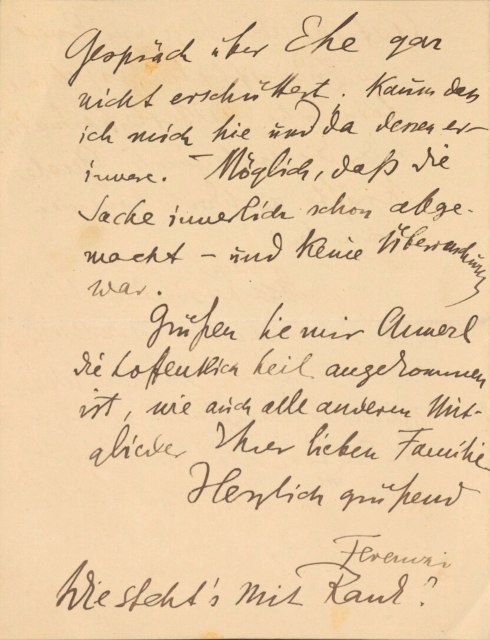 Gespräch über Ehe gar
nicht erschüttert. Kaum dass
ich mich hie und da dessen er-
innere. – Möglich, daß die
Sache innerlich schon abge-
macht – und keine Überraschung
war.
Grüßen Sie mir Annerl
die hoffentlich heil angekommen
ist, wie auch alle anderen Mit-
glieder Ihrer lieben Familie
Herzlich grüßend
Ferenczi
Wie steht's mit Rank?